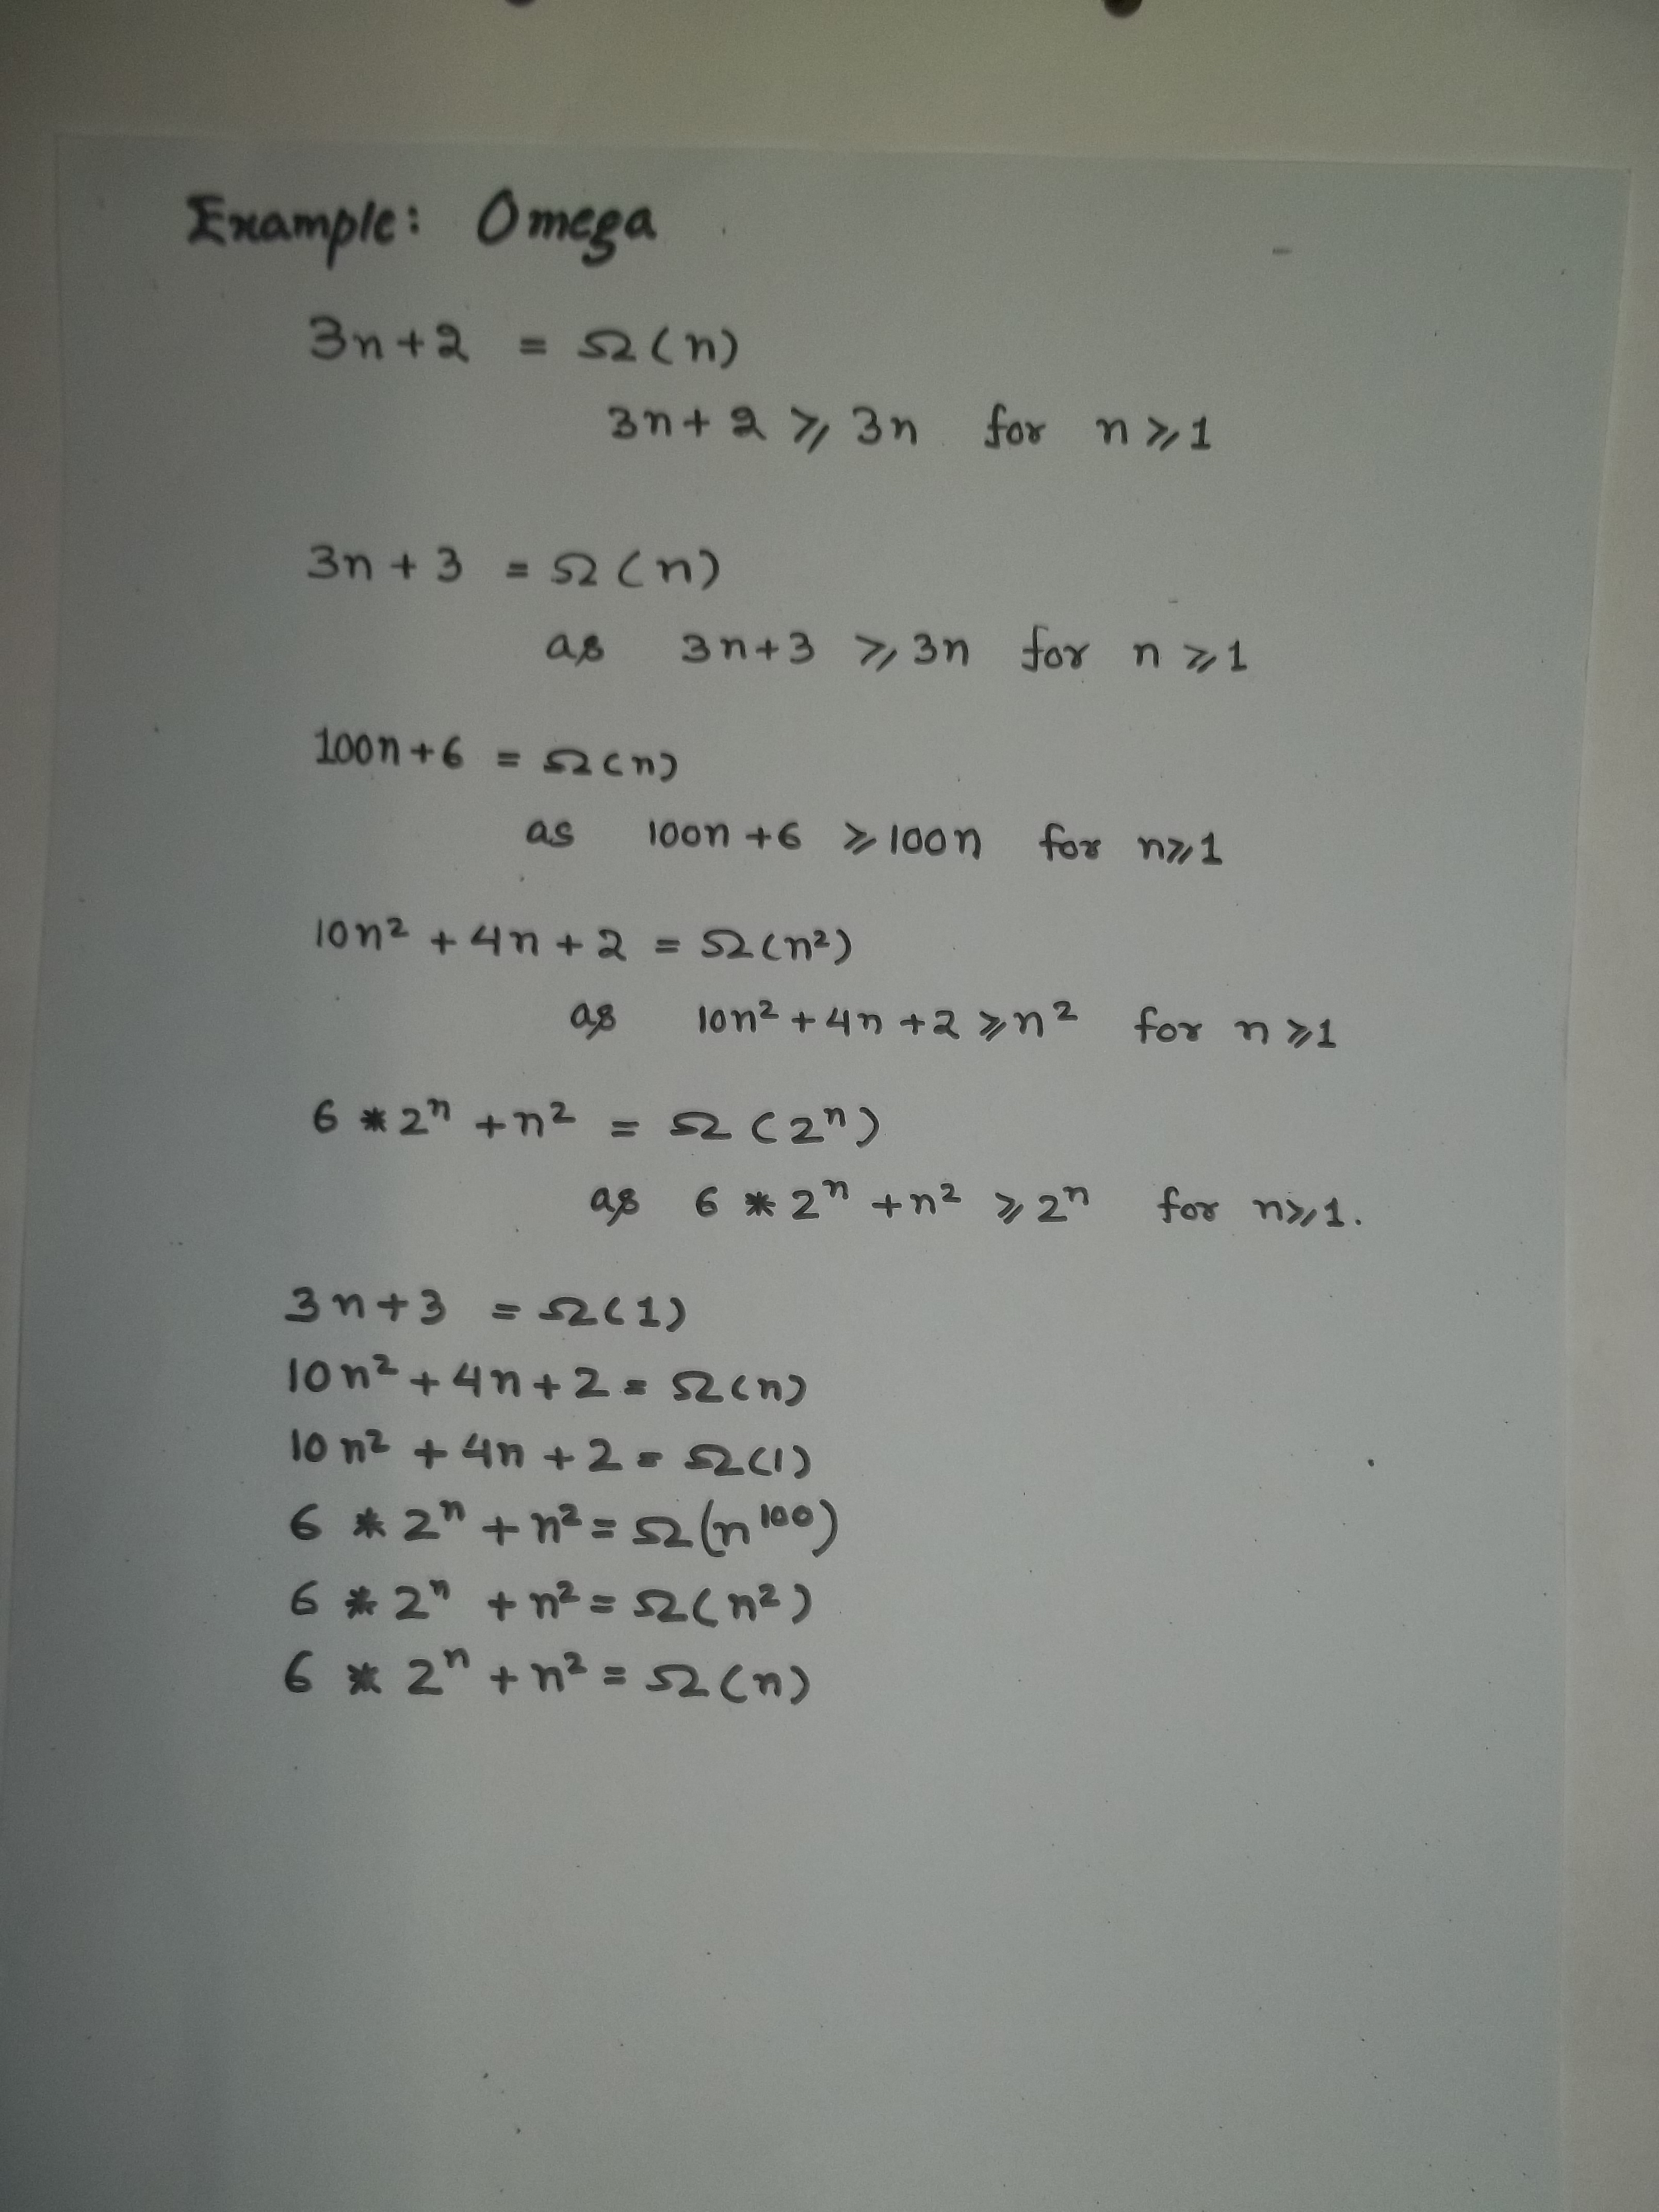 Example: Omega
3n+2 = Ω(n)
3n+2 ⩾ 3n for n⩾1
3n+3 = Ω(n)
as 3n+3 ⩾ 3n for n⩾1
100n+6 = Ω(n)
as 100n+6 ⩾ 100n for n⩾1
10n² + 4n + 2 = Ω(n²)
as 10n² + 4n + 2 ⩾ n² for n⩾1
6 * 2ⁿ + n² = Ω(2ⁿ)
as 6 * 2ⁿ + n² ⩾ 2ⁿ for n⩾1.
3n+3 = Ω(1)
10n² + 4n + 2 = Ω(n)
10n² + 4n + 2 = Ω(1)
6 * 2ⁿ + n² = Ω(n¹⁰⁰)
6 * 2ⁿ + n² = Ω(n²)
6 * 2ⁿ + n² = Ω(n)